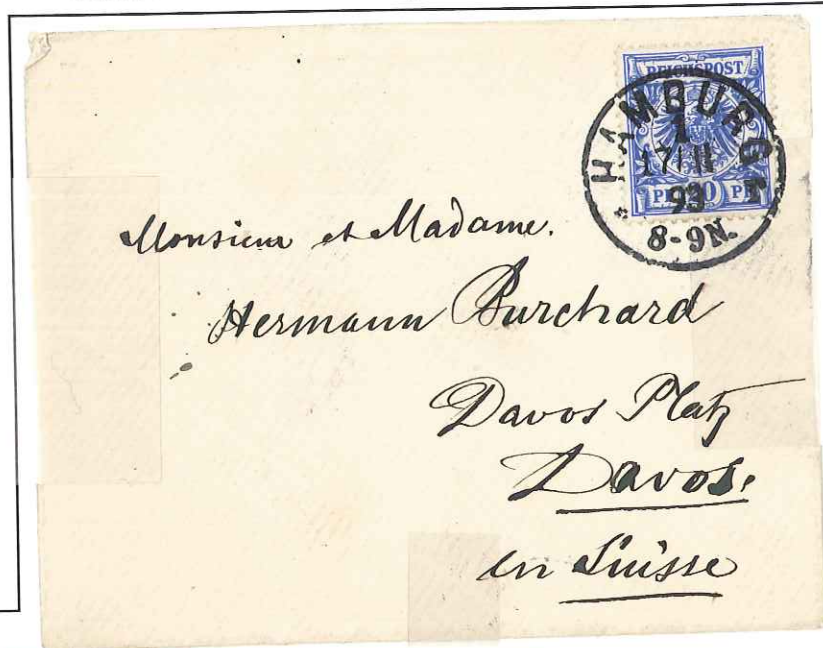 REICHSPOST
HAMBURG
1
93
8-9N.
Monsieur et Madame.
Hermann Burchard
Davos Platz
Davos.
en Suisse